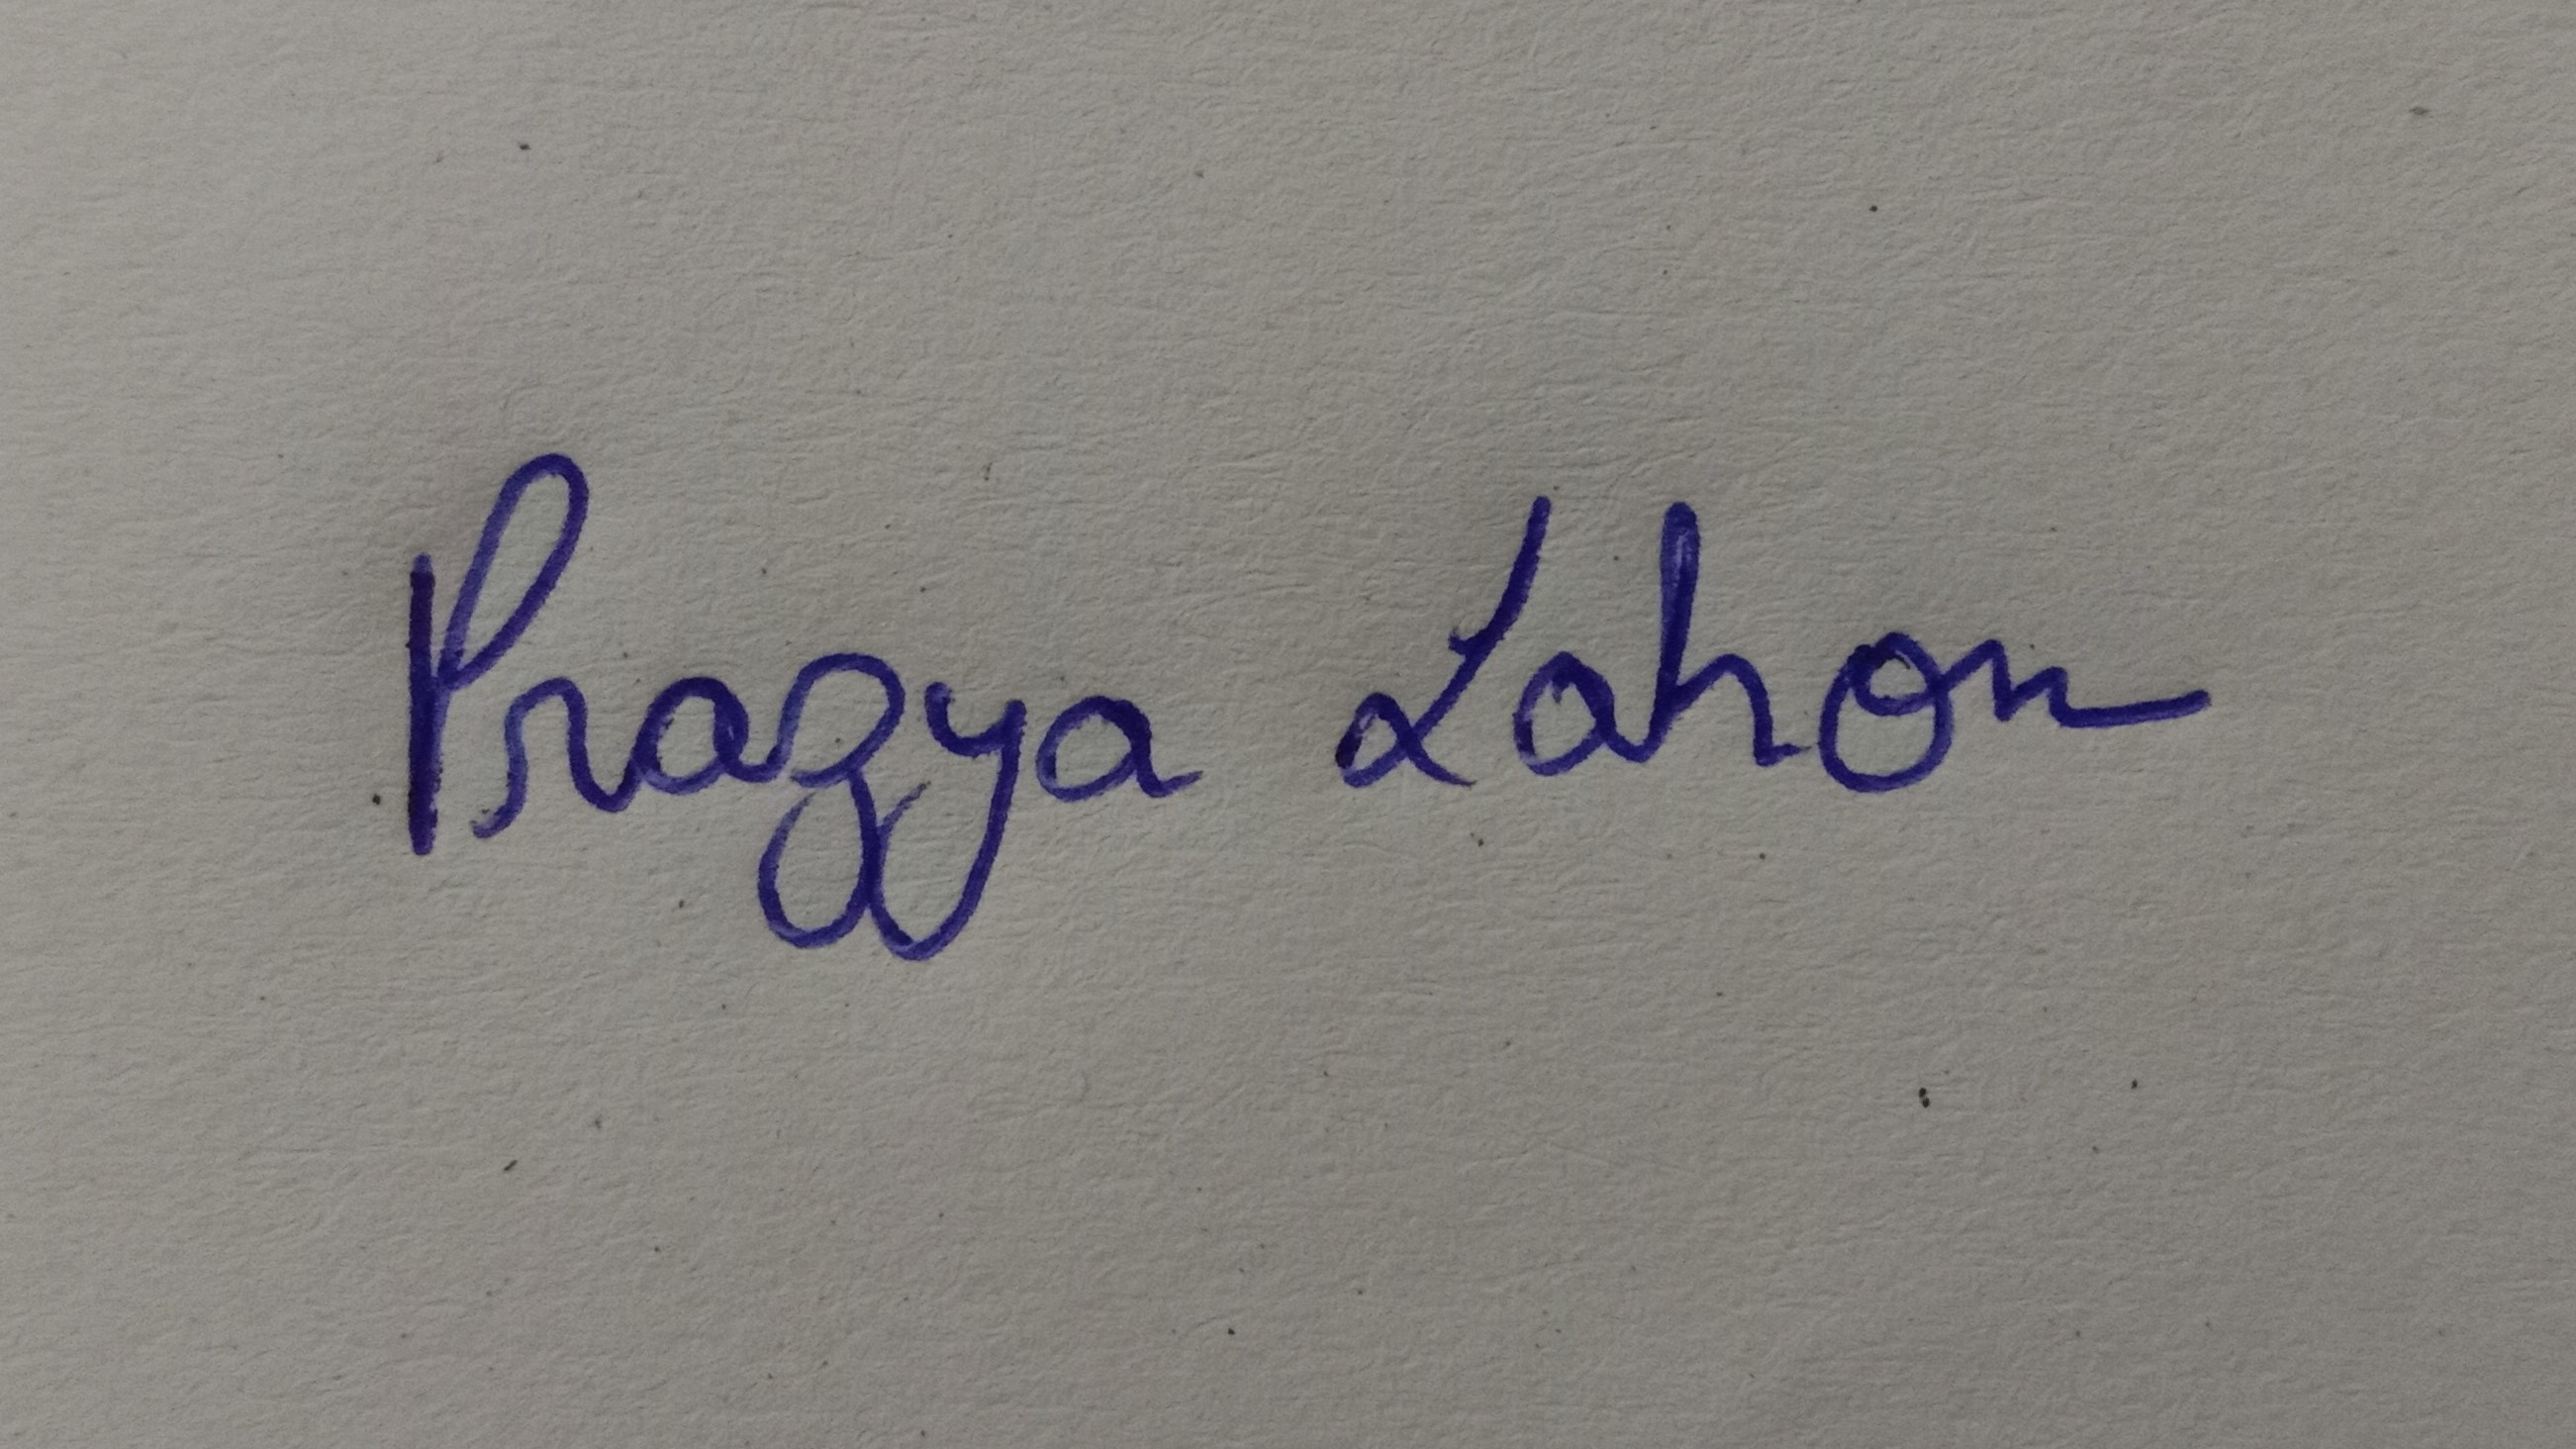 Prazya Lahon